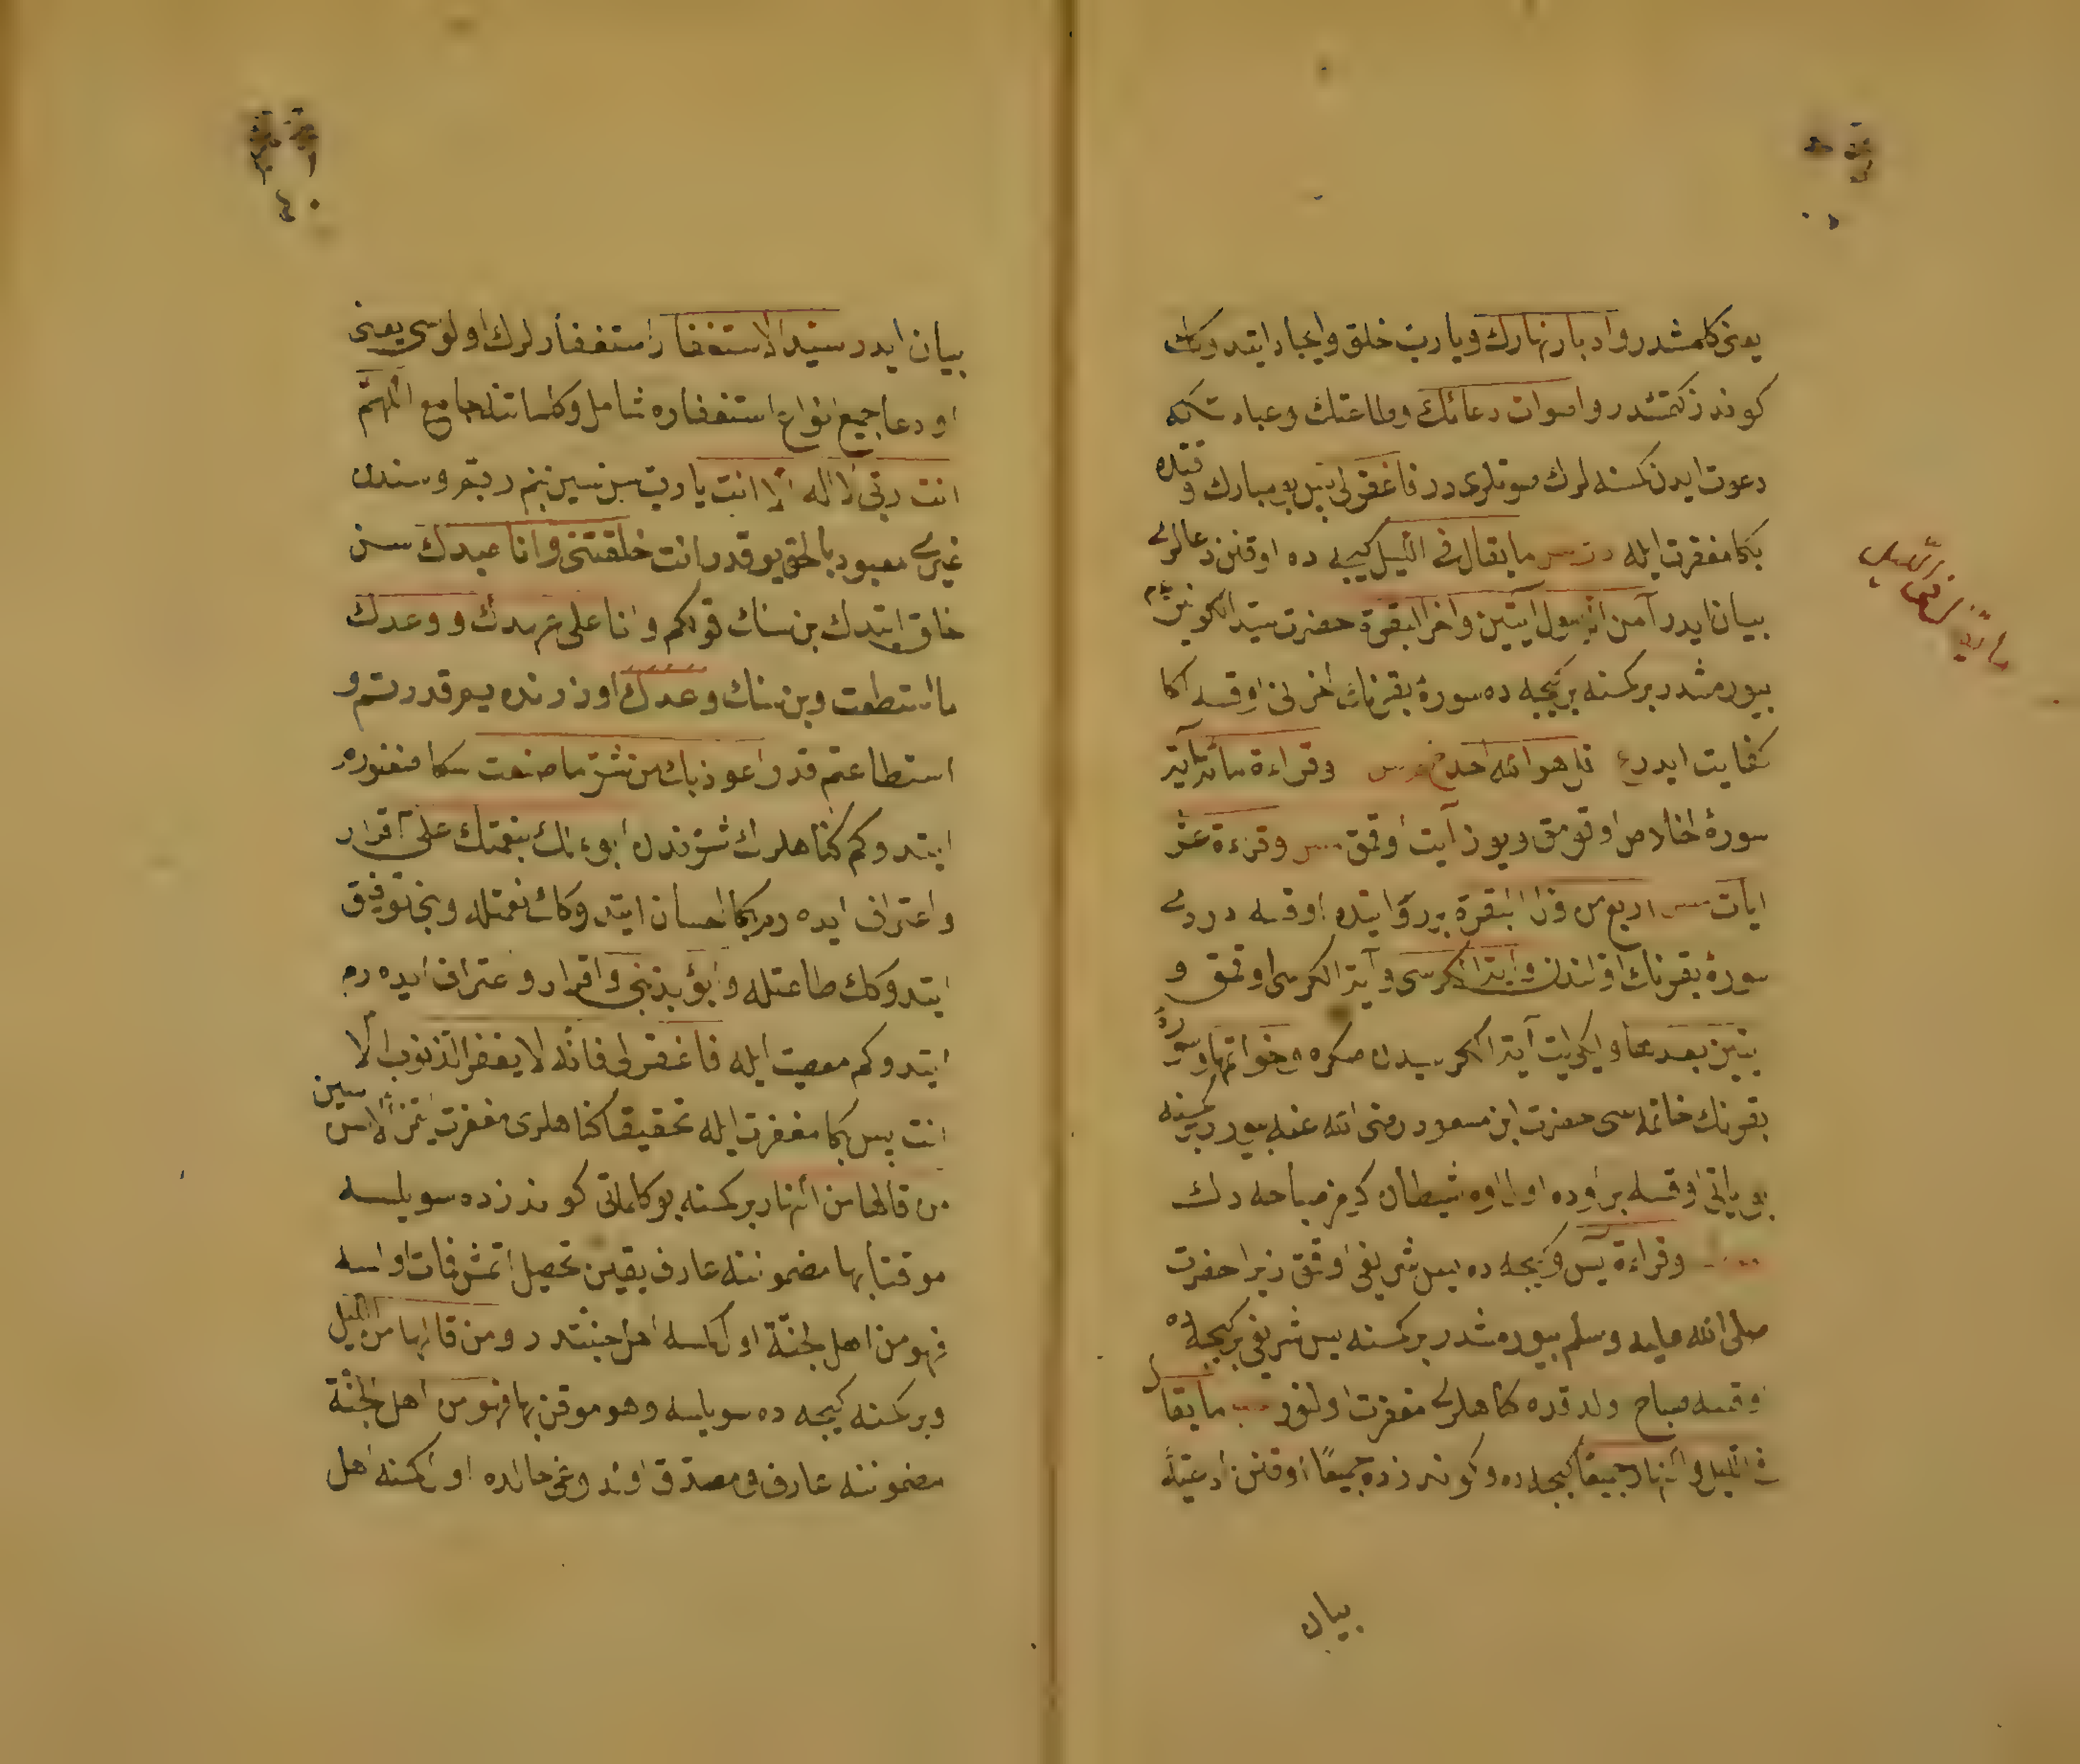 يعنى كلمشدر وادبار نهارك ويارب خلق وايجاد ايتدوكك
كوندز كتمشدر واصوات دعائك وطاعتك وعبادتكه
دعوت ايدن كمسنه لرك صوتلرى در فاغفرلى بس بو مبارك وقتده
بكا مغفرت ايله ما يقال فى الليل كيجه ده اوقنن دعالرى
بيان ايدر آمن الرسول ايتين واخر البقرة حضرت سيد الكونين
بيورمشدر بر كمسنه بر كيجه ده سورۀ بقرنك اخرنى اوقسه اكا
كفايت ايدر قل هو الله احد وقراءة مائة آية
سورۀ اخلاص اوقومق ويوز آيت اوقمق وقراءة عشر
ايات اربع من اول البقرة اوقسه
سورۀ بقرنك اولندن واية الكرسى وآية الكرسى اوقمق و
آيتين بعدها وايكى ايت آية الكرسيدن صكره وخواتمها وسورۀ
بقرنك خاتمه سى حضرت ابن مسعود رضى الله عنه بيورر بر كمسنه
اوقسه بر اوده اول اوه شيطان كيرمز صباحه دك
وقراءة يس وكيجه ده يس شريفى اوقمق زيرا حضرت
صلى الله عليه وسلم بيورمشدر بر كمسنه يس شريفى بر كيجه ده
اوقسه صباح اولدقده كناهلرى مغفرت اولنور ما يقال
فى الليل والنهار جميعا كيجه ده وكوندزده جميعًا اوقنن ادعيۀ
بيان
بيان ايدر سيد الاستغفار استغفار لرك اولوسى يعنى
او دعا جميع انواع استغفاره شامل وكلماتنه جامع اللهم
انت ربى لا اله الا انت يارب سن سين بنم ربم وسندن
غيرى معبود بالحق يوقدر انت خلقتنى وانا عبدك سن
خلق ايتدك بن سنك قولكم وانا على عهدك ووعدك
ما استطعت وبن سنك وعدك اوزرنده يم قدرتم و
استطاعتم قدر اعوذ بك من شر ما صنعت سكا صغنورم
ايتدوكم كناهلرك شرندن ابوء لك بنعمتك على اقرار
واعتراف ايده رم بكا احسان ايتدوكك نعمتله وبنى توفيق
ايتدوكك طاعتله وابوء بذنبى واقرار واعتراف ايده رم
ايتدوكم معصيت ايله فاغفرلى فانه لا يغفر الذنوب الا
انت بس بكا مغفرت ايله تحقيقا كناهلرى مغفرت ايتمز الا سن سين
من قالها من النهار بر كمسنه بو كلماتى كوندزده سويلسه
موقنا بها مضموننه عارف يقين تحصيل اتمش وفات اولسه
فهو من اهل الجنة اول كمسه اهل جنتدر ومن قالها من الليل
وبر كمسنه كيجه ده سويلسه وهو موقن بها فهو من اهل الجنة
مضموننه عارف ومصدق اولدوغى حالده اول كمسنه اهل